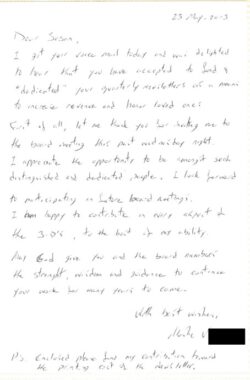 23 May-2013
Dear Susan,
I got your voice mail today and was delighted
to hear that you have accepted to send a
"dedicated" your quarterly newsletters as a means
to increase revenue and honor loved ones.
First of all, let me thank you for inviting me to
the board meeting this past wednesday night.
I appreciate the opportunity to be amongst such
distinguished and dedicated people. I look forward
to participating in future board meetings.
I am happy to contribute in every aspect of
the 3-D's, to the best of my ability.
May God give you and the board members
the strength, wisdom and guidance to continue
your work for many years to come.
With best wishes,
P.S. Enclosed please find my contribution toward
the printing cost of the newsletter.